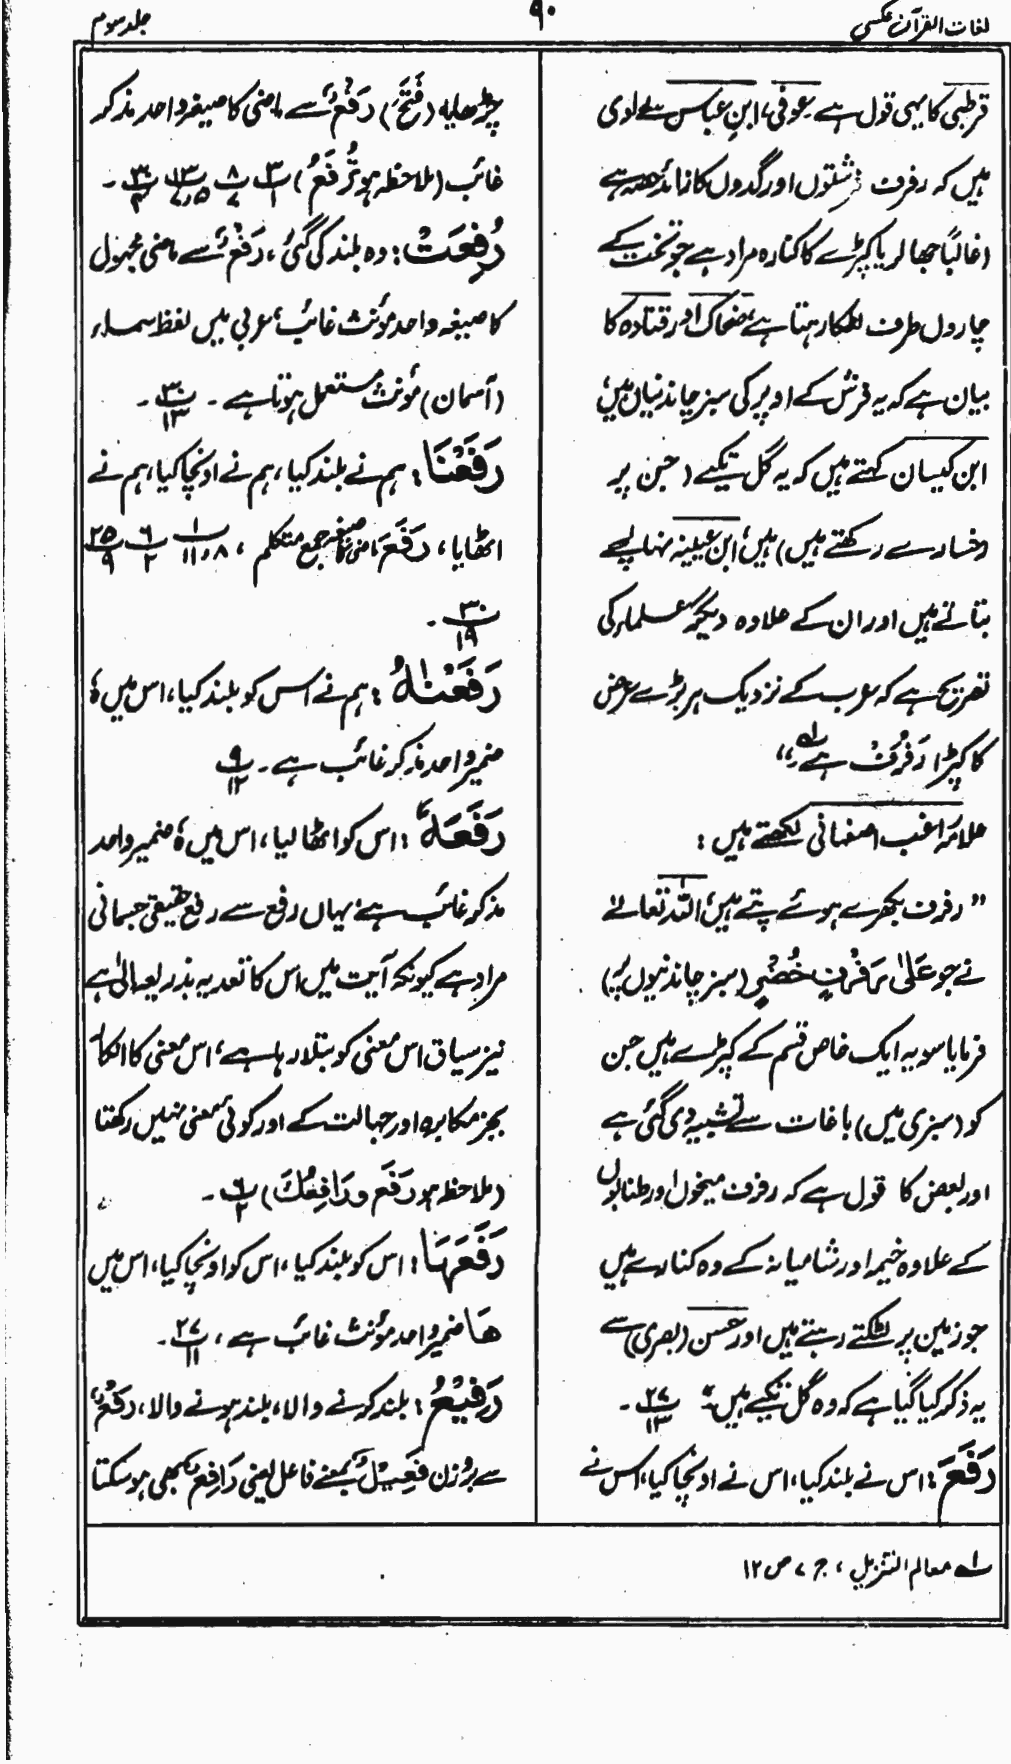 لغات القرآن عکسی
۹۰
جلد سوم
قرطبی کا یہی قول ہے عوفی، ابن عباس سے راوی
ہیں کہ رفرف فرشتوں اور گدوں کا زائد حصہ ہے
(غالباً جھالر یا کپڑے کا کنارہ مراد ہے جو تخت کے
چاروں طرف لٹکا رہتا ہے، ضحاک اور قتادہ کا
بیان ہے کہ یہ فرش کے اوپر کی سبز چاندنیاں ہیں،
ابن کیسان کہتے ہیں کہ یہ گل تکیے (جن پر
رخسارے رکھتے ہیں) ہیں، ابن عیینہ نہالچے
بتاتے ہیں اور ان کے علاوہ دیگر علماء کی
تصریح ہے کہ عرب کے نزدیک ہر بڑے عرض
کا کپڑا رَفرَف ہے۔؎۱"
علامہ راغب اصفہانی لکھتے ہیں :
" رفرف بکھرے ہوئے پتے ہیں، اللہ تعالےٰ
نے جو عَلیٰ رَفْرَفٍ خُضْرٍ (سبز چاندنیوں پر)
فرمایا سو یہ ایک خاص قسم کے کپڑے ہیں جن
کو (سبزی میں) باغات سے تشبیہ دی گئی ہے
اور بعض کا قول ہے کہ رفرف میخوں اور طنابوں
کے علاوہ خیمہ اور شامیانہ کے وہ کنارے ہیں
جو زمین پر لٹکتے رہتے ہیں اور حسن (بصری) سے
یہ ذکر کیا گیا ہے کہ وہ گل تکیے ہیں" ۲۷/۱۳ ۔
رَفَعَ : اس نے بلند کیا، اس نے اونچا کیا، اس نے
چڑھایا، (فَتَحَ) رَفْعٌ سے ماضی کا صیغہ واحد مذکر
غائب (ملاحظہ ہو تُرْفَعُ) ۳/۱ ۸/۷ ۱۳/۷،۵ ۔
رُفِعَتْ : وہ بلند کی گئی، رَفْعٌ سے ماضی مجہول
کا صیغہ واحد مؤنث غائب، عربی میں لفظ سماء
(آسمان) مؤنث مستعمل ہوتا ہے ۔ ۳۰/۱۳ ۔
رَفَعْنَا : ہم نے بلند کیا، ہم نے اونچا کیا، ہم نے
اٹھایا، رَفَعَ ماضی کا صیغہ جمع متکلم ، ۱/۱۱،۸ ۶/۲ ۲۵/۹
۳۰/۱۹ ۔
رَفَعْنٰهُ : ہم نے اس کو بلند کیا، اس میں ہٗ
ضمیر واحد مذکر غائب ہے ۔ ۹/۱۲
رَفَعَهُ : اس کو اٹھا لیا، اس میں ہٗ ضمیر واحد
مذکر غائب ہے، یہاں رفع سے رفع حقیقی جسمانی
مراد ہے کیونکہ آیت میں اس کا تعدیہ بذریعہ الیٰ ہے
نیز سیاق اس معنی کو بتلا رہا ہے، اس معنی کا انکار
بجز مکابرہ اور جہالت کے اور کوئی معنی نہیں رکھتا
(ملاحظہ ہو رَفَعَ و رَافِعُكَ) ۶/۲ ۔
رَفَعَهَا : اس کو بلند کیا، اس کو اونچا کیا، اس میں
ھَا ضمیر واحد مؤنث غائب ہے ، ۲۷/۱۱ ۔
رَفِیْعُ : بلند کرنے والا، بلند ہونے والا، رَفْعٌ
سے بروزن فَعِیْلٌ بمعنے فاعل یعنی رَافِعٌ بھی ہو سکتا
؎۱ معالم التنزیل ، ج ۷ ص ۱۲